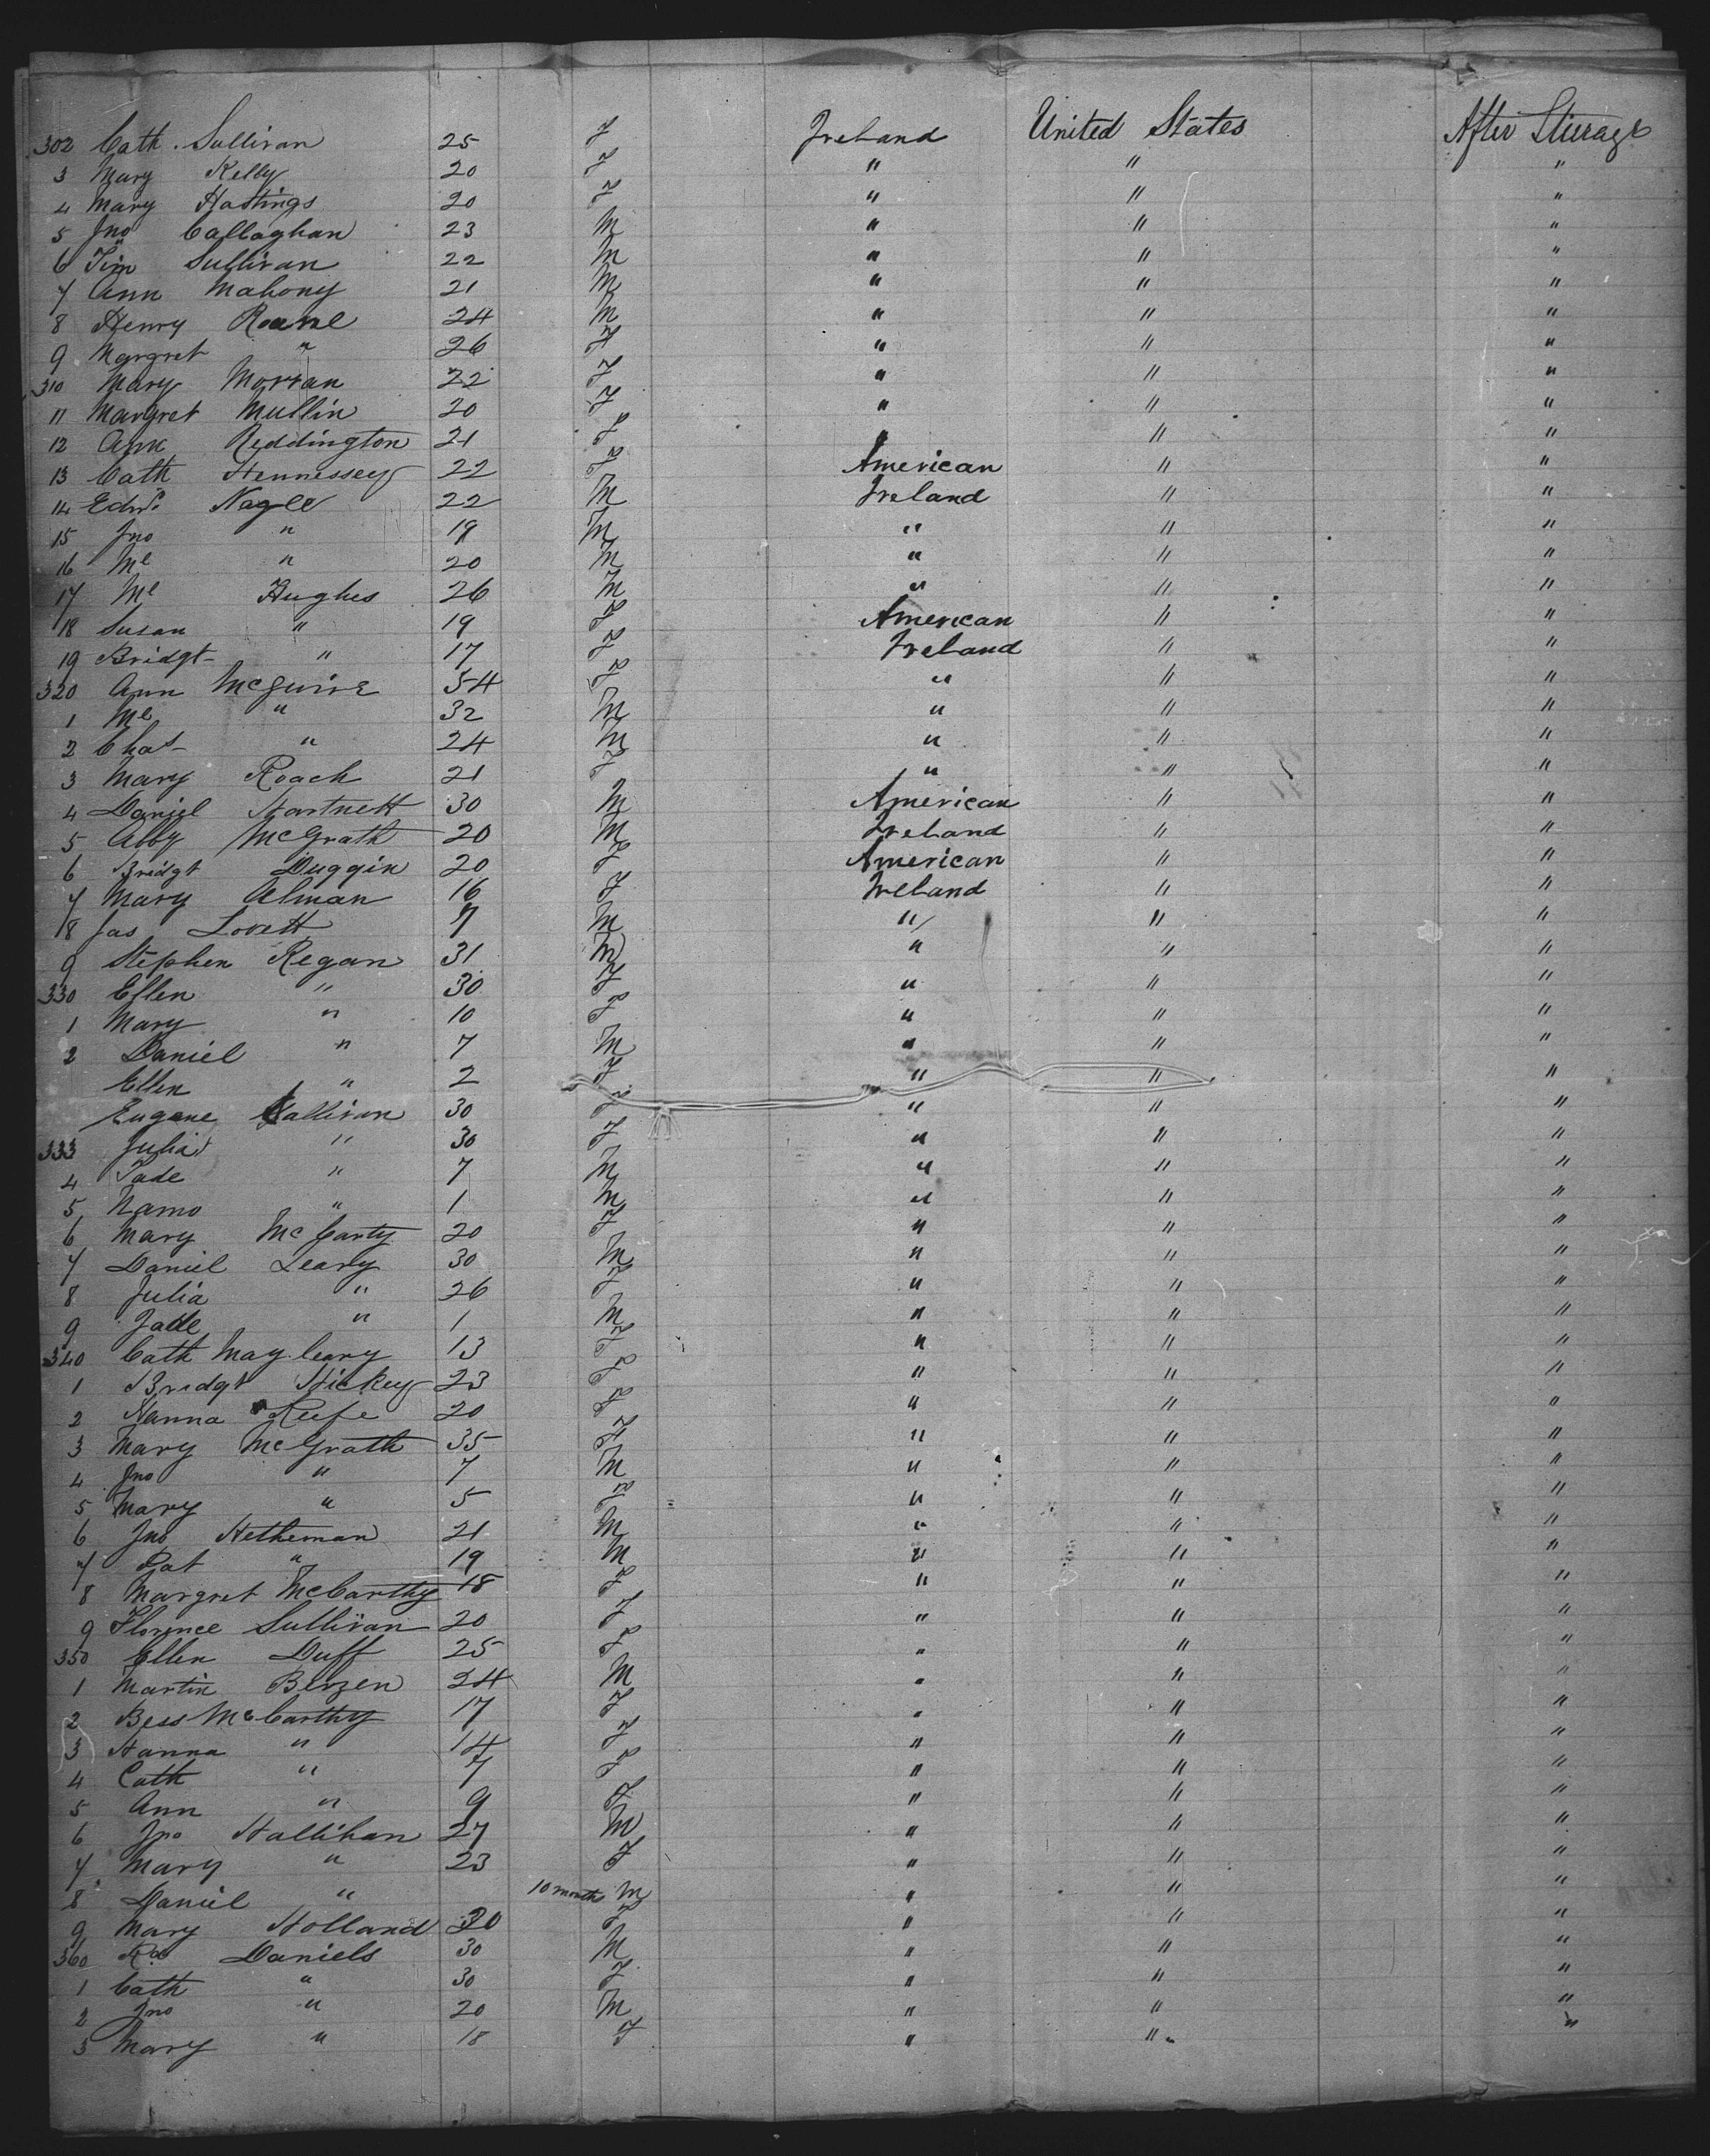 302 Cath. Sullivan 25 F Ireland United States After Stierage
3 Mary Kelly 20 F " " "
4 Mary Hastings 20 F " " "
5 Jno Callaghan 23 M " " "
6 Tim Sullivan 22 M " " "
7 Ann Mahony 21 M " " "
8 Henry Roane 24 M " " "
9 Margret " 26 F " " "
310 Mary 22 F " " "
11 Margret Mullin 20 F " " "
12 Ann Reddington 21 F " " "
13 Cath Hennessey 22 F American " "
14 Edwd. Nagle 22 M Ireland " "
15 Jno " 19 M " " "
16 Ml " 20 M " " "
17 Ml Hughes 26 M " " "
18 Susan " 19 F American " "
19 Bridgt " 17 F Ireland " "
320 Ann McGuire 54 F " " "
1 Ml " 32 M " " "
2 Chas " 24 M " " "
3 Mary Roach 21 F " " "
4 Daniel Hartnett 30 M American " "
5 Abby McGrath 20 M Ireland " "
6 Bridgt Duggin 20 F American " "
7 Mary Alman 16 F Ireland " "
8 Jas Lovett 7 M " " "
9 Stephen Regan 31 M " " "
330 Ellen " 30 F " " "
1 Mary " 10 F " " "
2 Daniel " 7 M " " "
Ellen " 2 F " " "
Eugene Sullivan 30 F " " "
333 Julia " 30 F " " "
4 Tade " 7 M " " "
5 Namo " 1 M " " "
6 Mary McCarty 20 F " " "
7 Daniel Leary 30 M " " "
8 Julia " 26 F " " "
9 Jade " 1 M " " "
340 Cath May Leary 13 F " " "
1 Bridgt Hickey 23 F " " "
2 Hanna Keefe 20 F " " "
3 Mary McGrath 35 F " " "
4 Jno " 7 M " " "
5 Mary " 5 F " " "
6 Jno Hetheman 21 M " " "
7 Pat " 19 M " " "
8 Margret McCarthy 18 F " " "
9 Florence Sullivan 20 F " " "
350 Ellen Duff 25 F " " "
1 Martin 24 M " " "
2 Bess McCarthy 17 F " " "
3 Hanna " 14 F " " "
4 Cath " 7 F " " "
5 Ann " 9 F " " "
6 Jno Hallihan 27 M " " "
7 Mary " 23 F " " "
8 Daniel " 10 months M " " "
9 Mary Holland 20 F " " "
360 Rd Daniels 30 M " " "
1 Cath " 30 F " " "
2 Jno " 20 M " " "
3 Mary " 18 F " " "